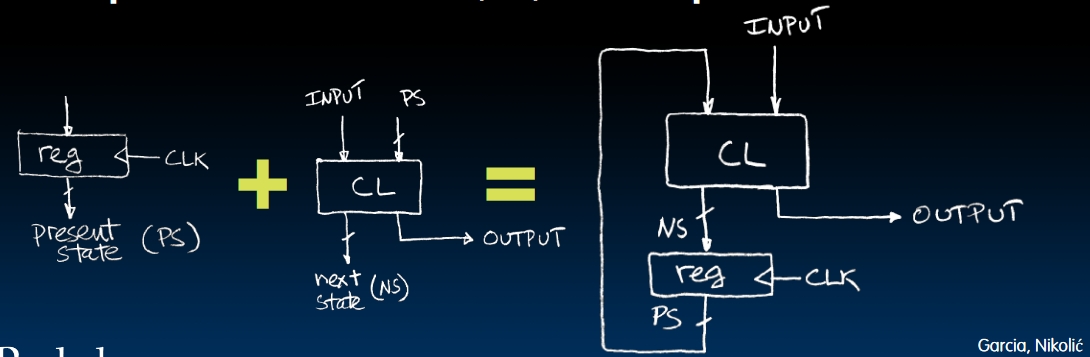 reg
CLK
present
state (PS)
+
INPUT PS
CL
OUTPUT
next
state (NS)
=
INPUT
CL
OUTPUT
NS
reg
CLK
PS
Garcia, Nikolić